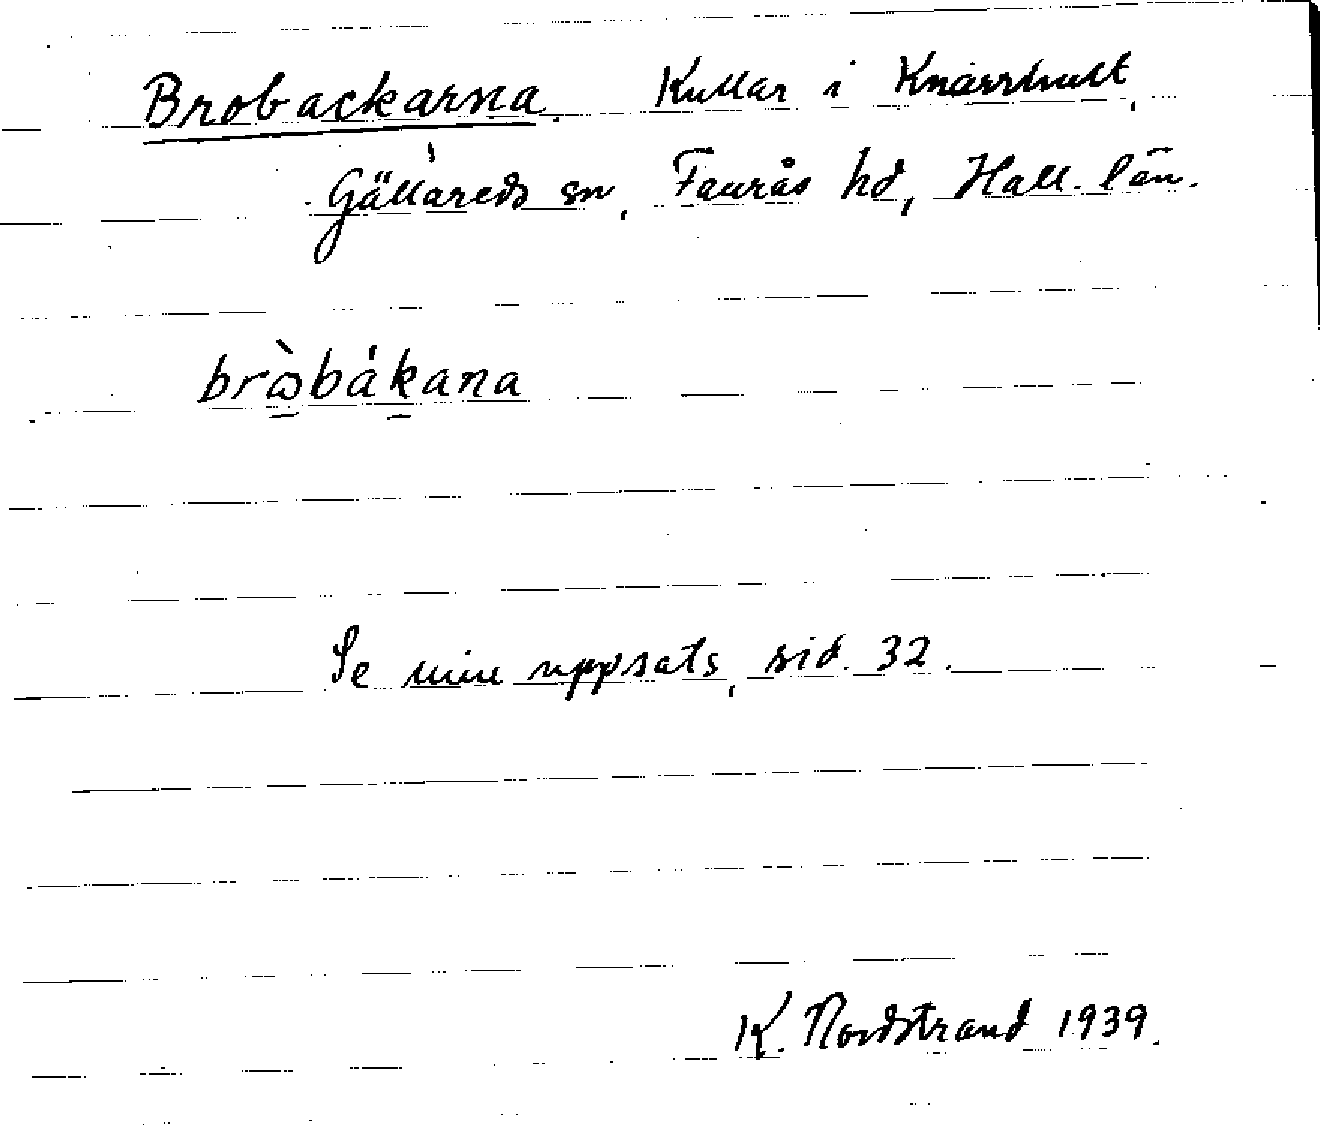 Brobackarna. Kullar i Knarrhult,
Gällareds sn, Faurås hd, Hall. län.
brɷ̀bákana
Se min uppsats, sid. 32.
K. Nordstrand 1939.